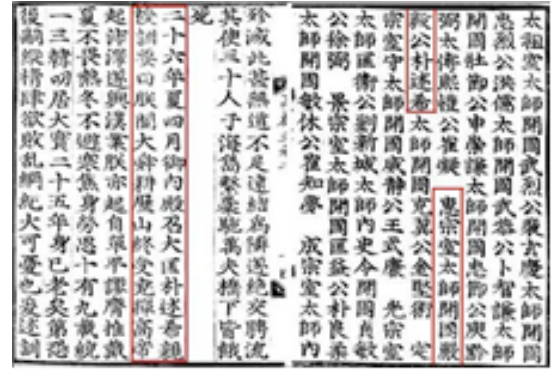 太祖室太師開國武烈公裴玄慶太師開國
忠烈公洪儒太師開國武恭公卜智謙太師
開國壯節公申崇謙太師開國忠節公庾黔
弼太傅熙愷公崔凝　惠宗室太師開國嚴
毅公朴述希太師開國克翼公金堅術　定
宗室守太師開國威靜公王式廉　光宗室
太師匡衛公劉新城太師內史令開國貞敏
公徐弼　景宗室太師開國匡益公朴良柔
太師開國敏休公崔知夢　成宗室太師內
殄滅此甚無道不足遠結爲隣遂絶交聘流
其使三十人于海島繫橐駝萬夫橋下皆餓
死
二十六年夏四月御內殿召大匡朴述希親
授訓要曰朕聞大舜耕歷山終受堯禪高帝
起沛澤遂興漢業朕亦起自單平謬膺推戴
夏不畏熱冬不避寒焦身勞思十有九載統
一三韓叨居大寶二十五年身已老矣第恐
後嗣縱情肆欲敗乱綱紀大可憂也爰述訓